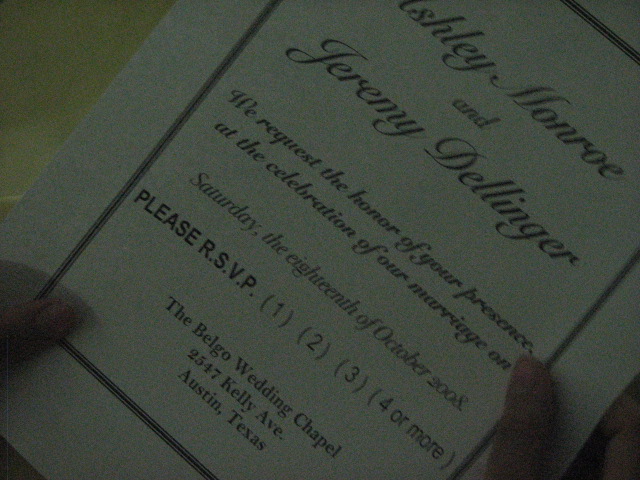 Ashley Monroe
and
Jeremy Dellinger
We request the honor of your presence
at the celebration of our marriage on
Saturday, the eighteenth of October 2008.
PLEASE R.S.V.P. (1) (2) (3) (4 or more)
The Belgo Wedding Chapel
2547 Kelly Ave.
Austin, Texas